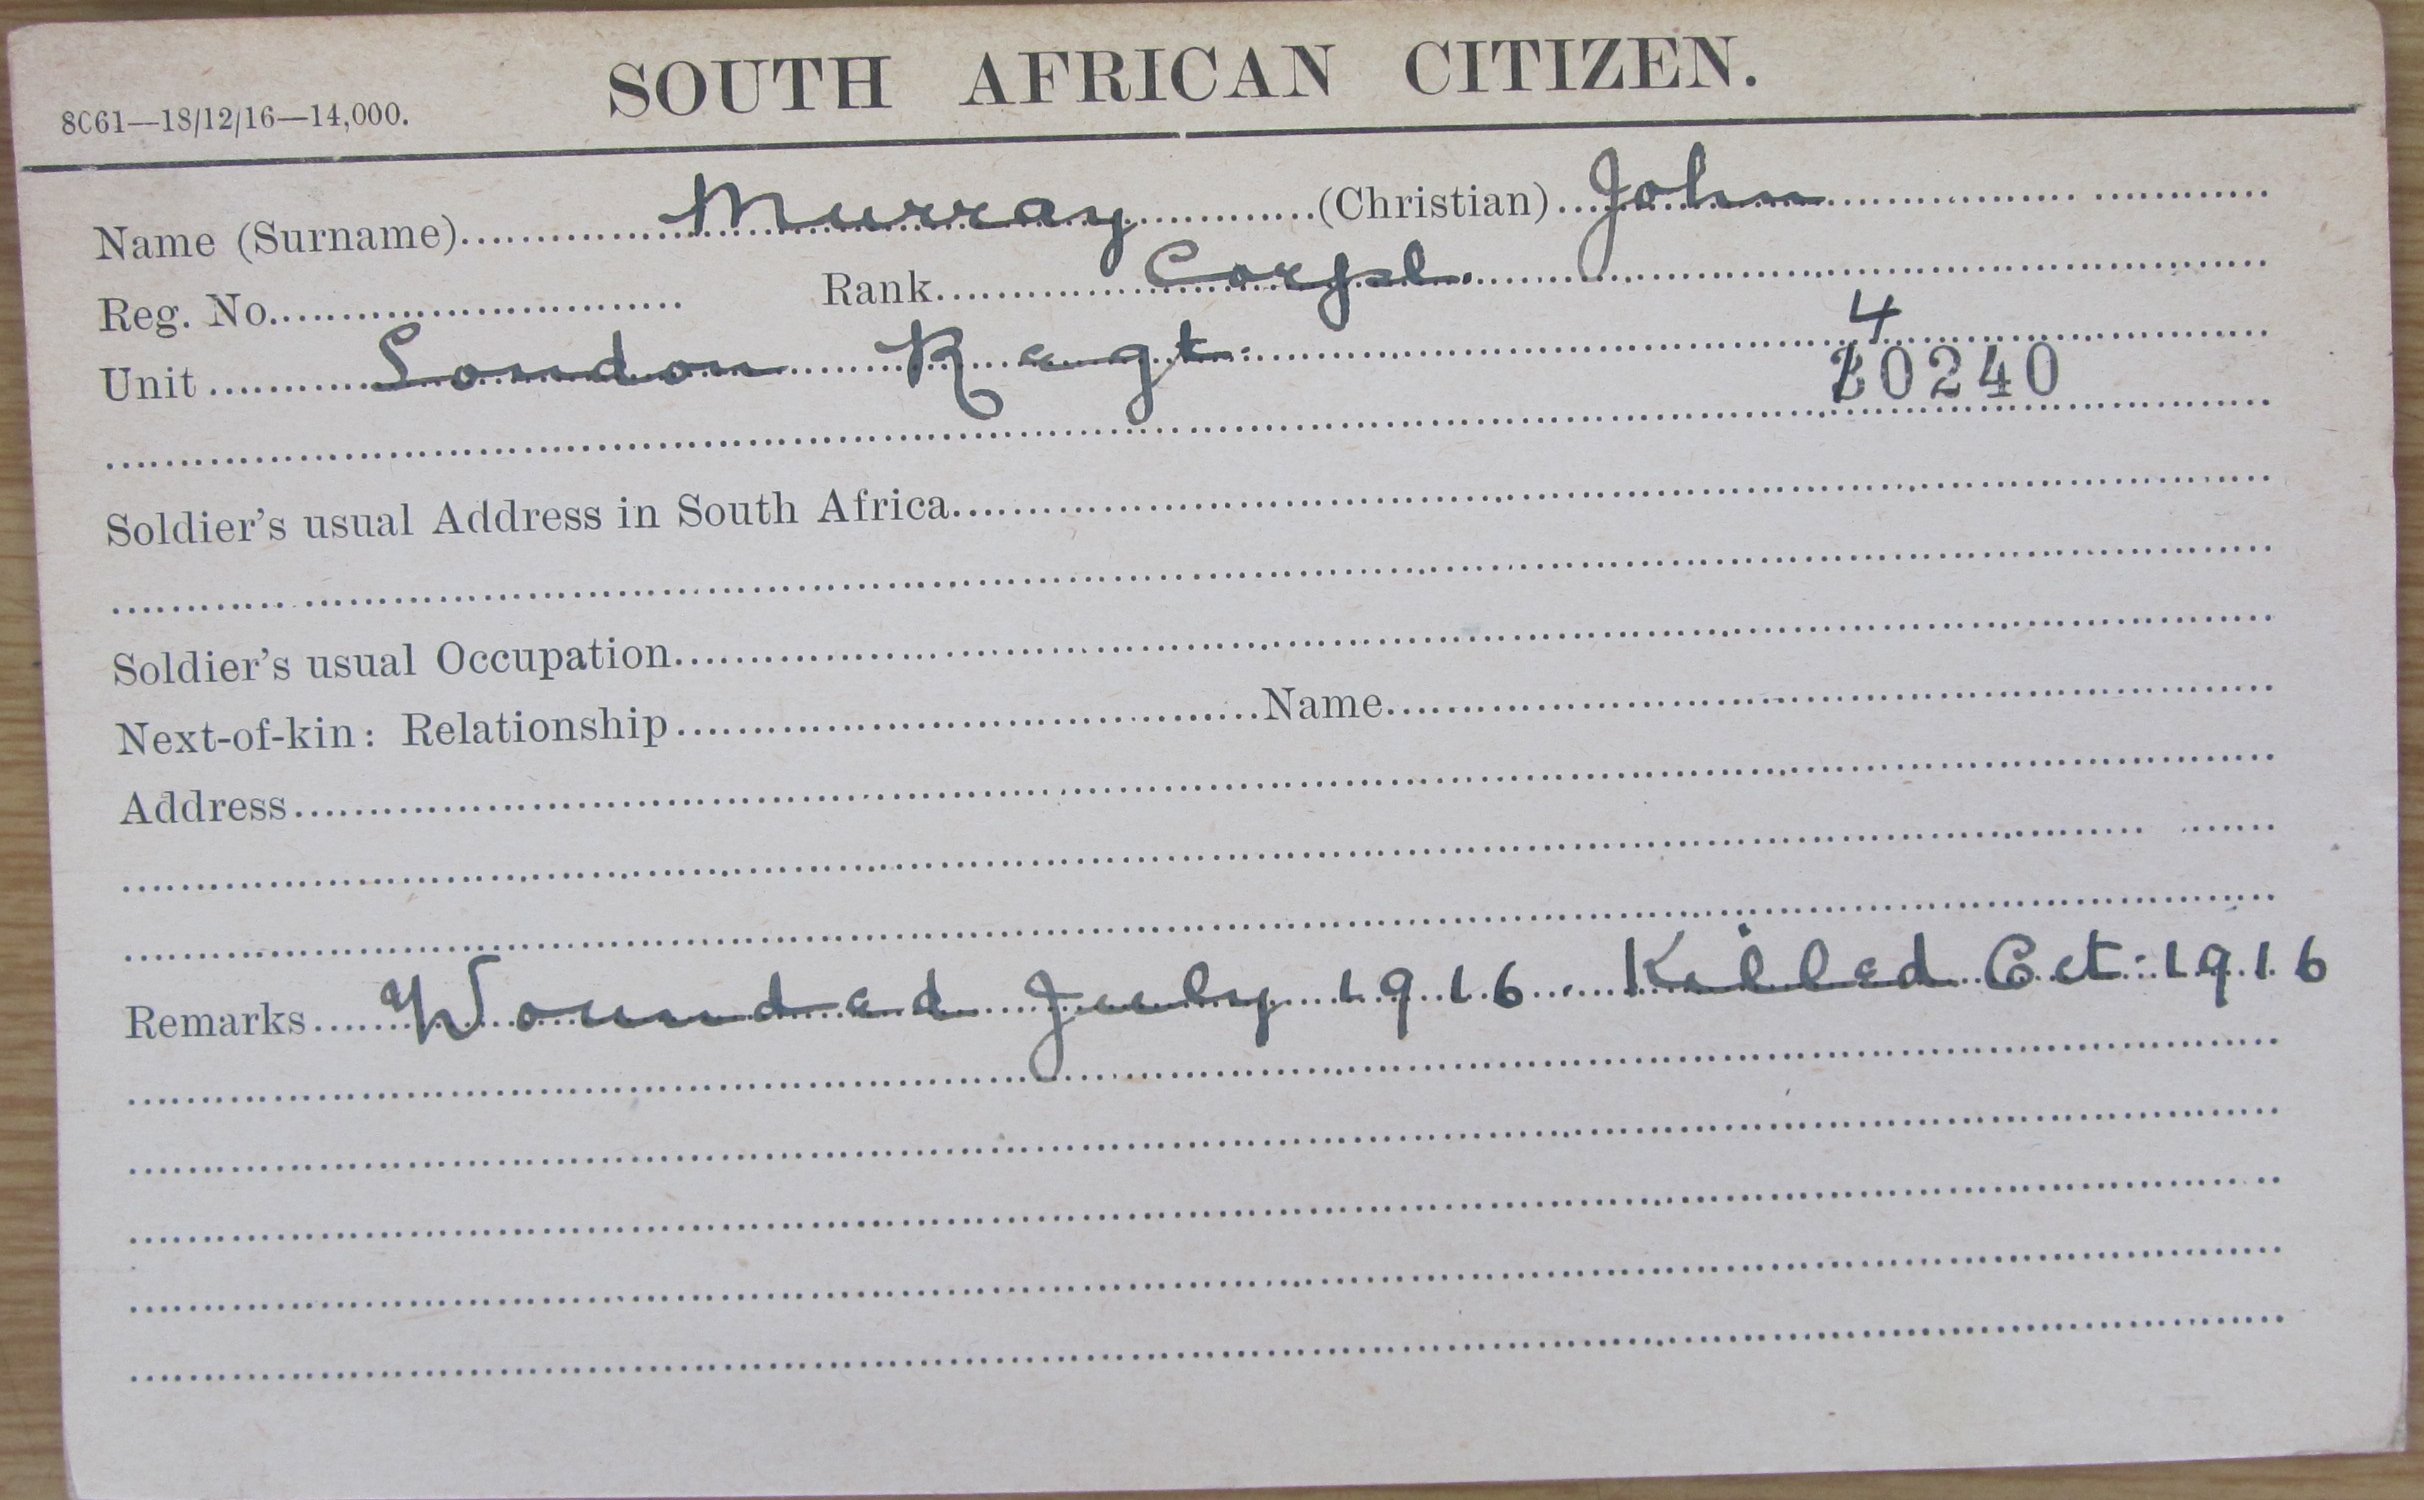 SOUTH AFRICAN CITIZEN.
8C61—18/12/16—14,000.
Name (Surname) Murray (Christian) John
Reg. No. Rank Corpl.
Unit London Regt.
4
0240
Soldier's usual Address in South Africa
Soldier's usual Occupation
Next-of-kin: Relationship Name
Address
Remarks Wounded July 1916. Killed Oct: 1916